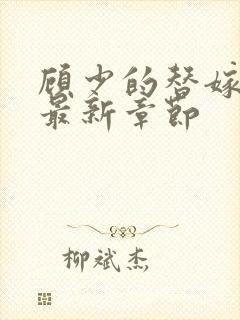 顾少的替嫁
最新章节
柳斌杰